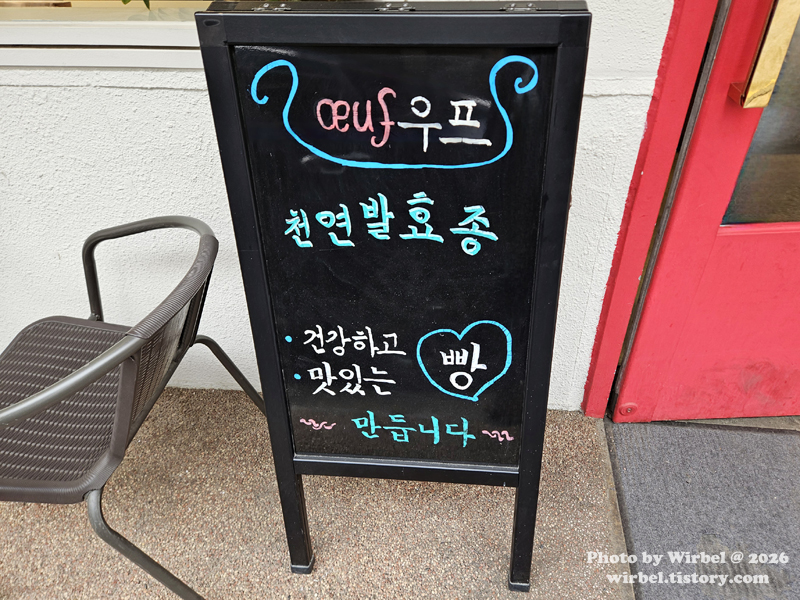 œuf우프
천연발효종
• 건강하고
• 맛있는
빵
만듭니다
Photo by Wirbel @ 2026
wirbel.tistory.com